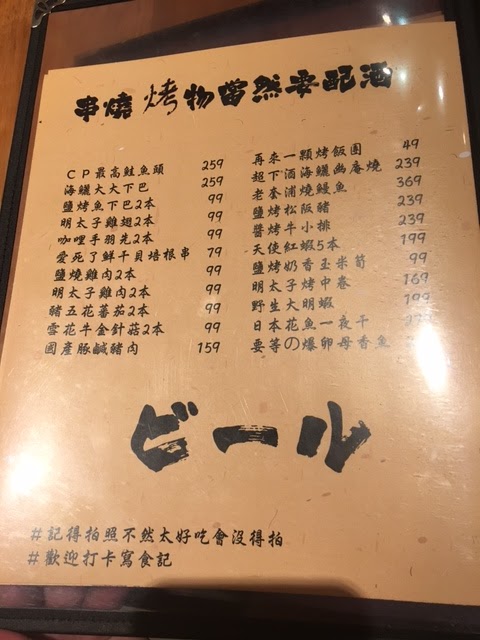 串燒烤物當然要配酒
CP最高鮭魚頭 259
海鱺大大下巴 259
鹽烤魚下巴2本 99
明太子雞翅2本 99
咖哩手羽先2本 99
愛死了鮮干貝培根串 79
鹽燒雞肉2本 99
明太子雞肉2本 99
豬五花蕃茄2本 99
雪花牛金針菇2本 99
國產豚鹹豬肉 159
再來一顆烤飯團 49
超下酒海鱺幽庵燒 239
老套浦燒鰻魚 369
鹽烤松阪豬 239
醬烤牛小排 239
天使紅蝦5本 199
鹽烤奶香玉米筍 99
明太子烤中卷 169
野生大明蝦 199
日本花魚一夜干
要等の爆卵母香魚
ビール
#記得拍照不然太好吃會沒得拍
#歡迎打卡寫食記